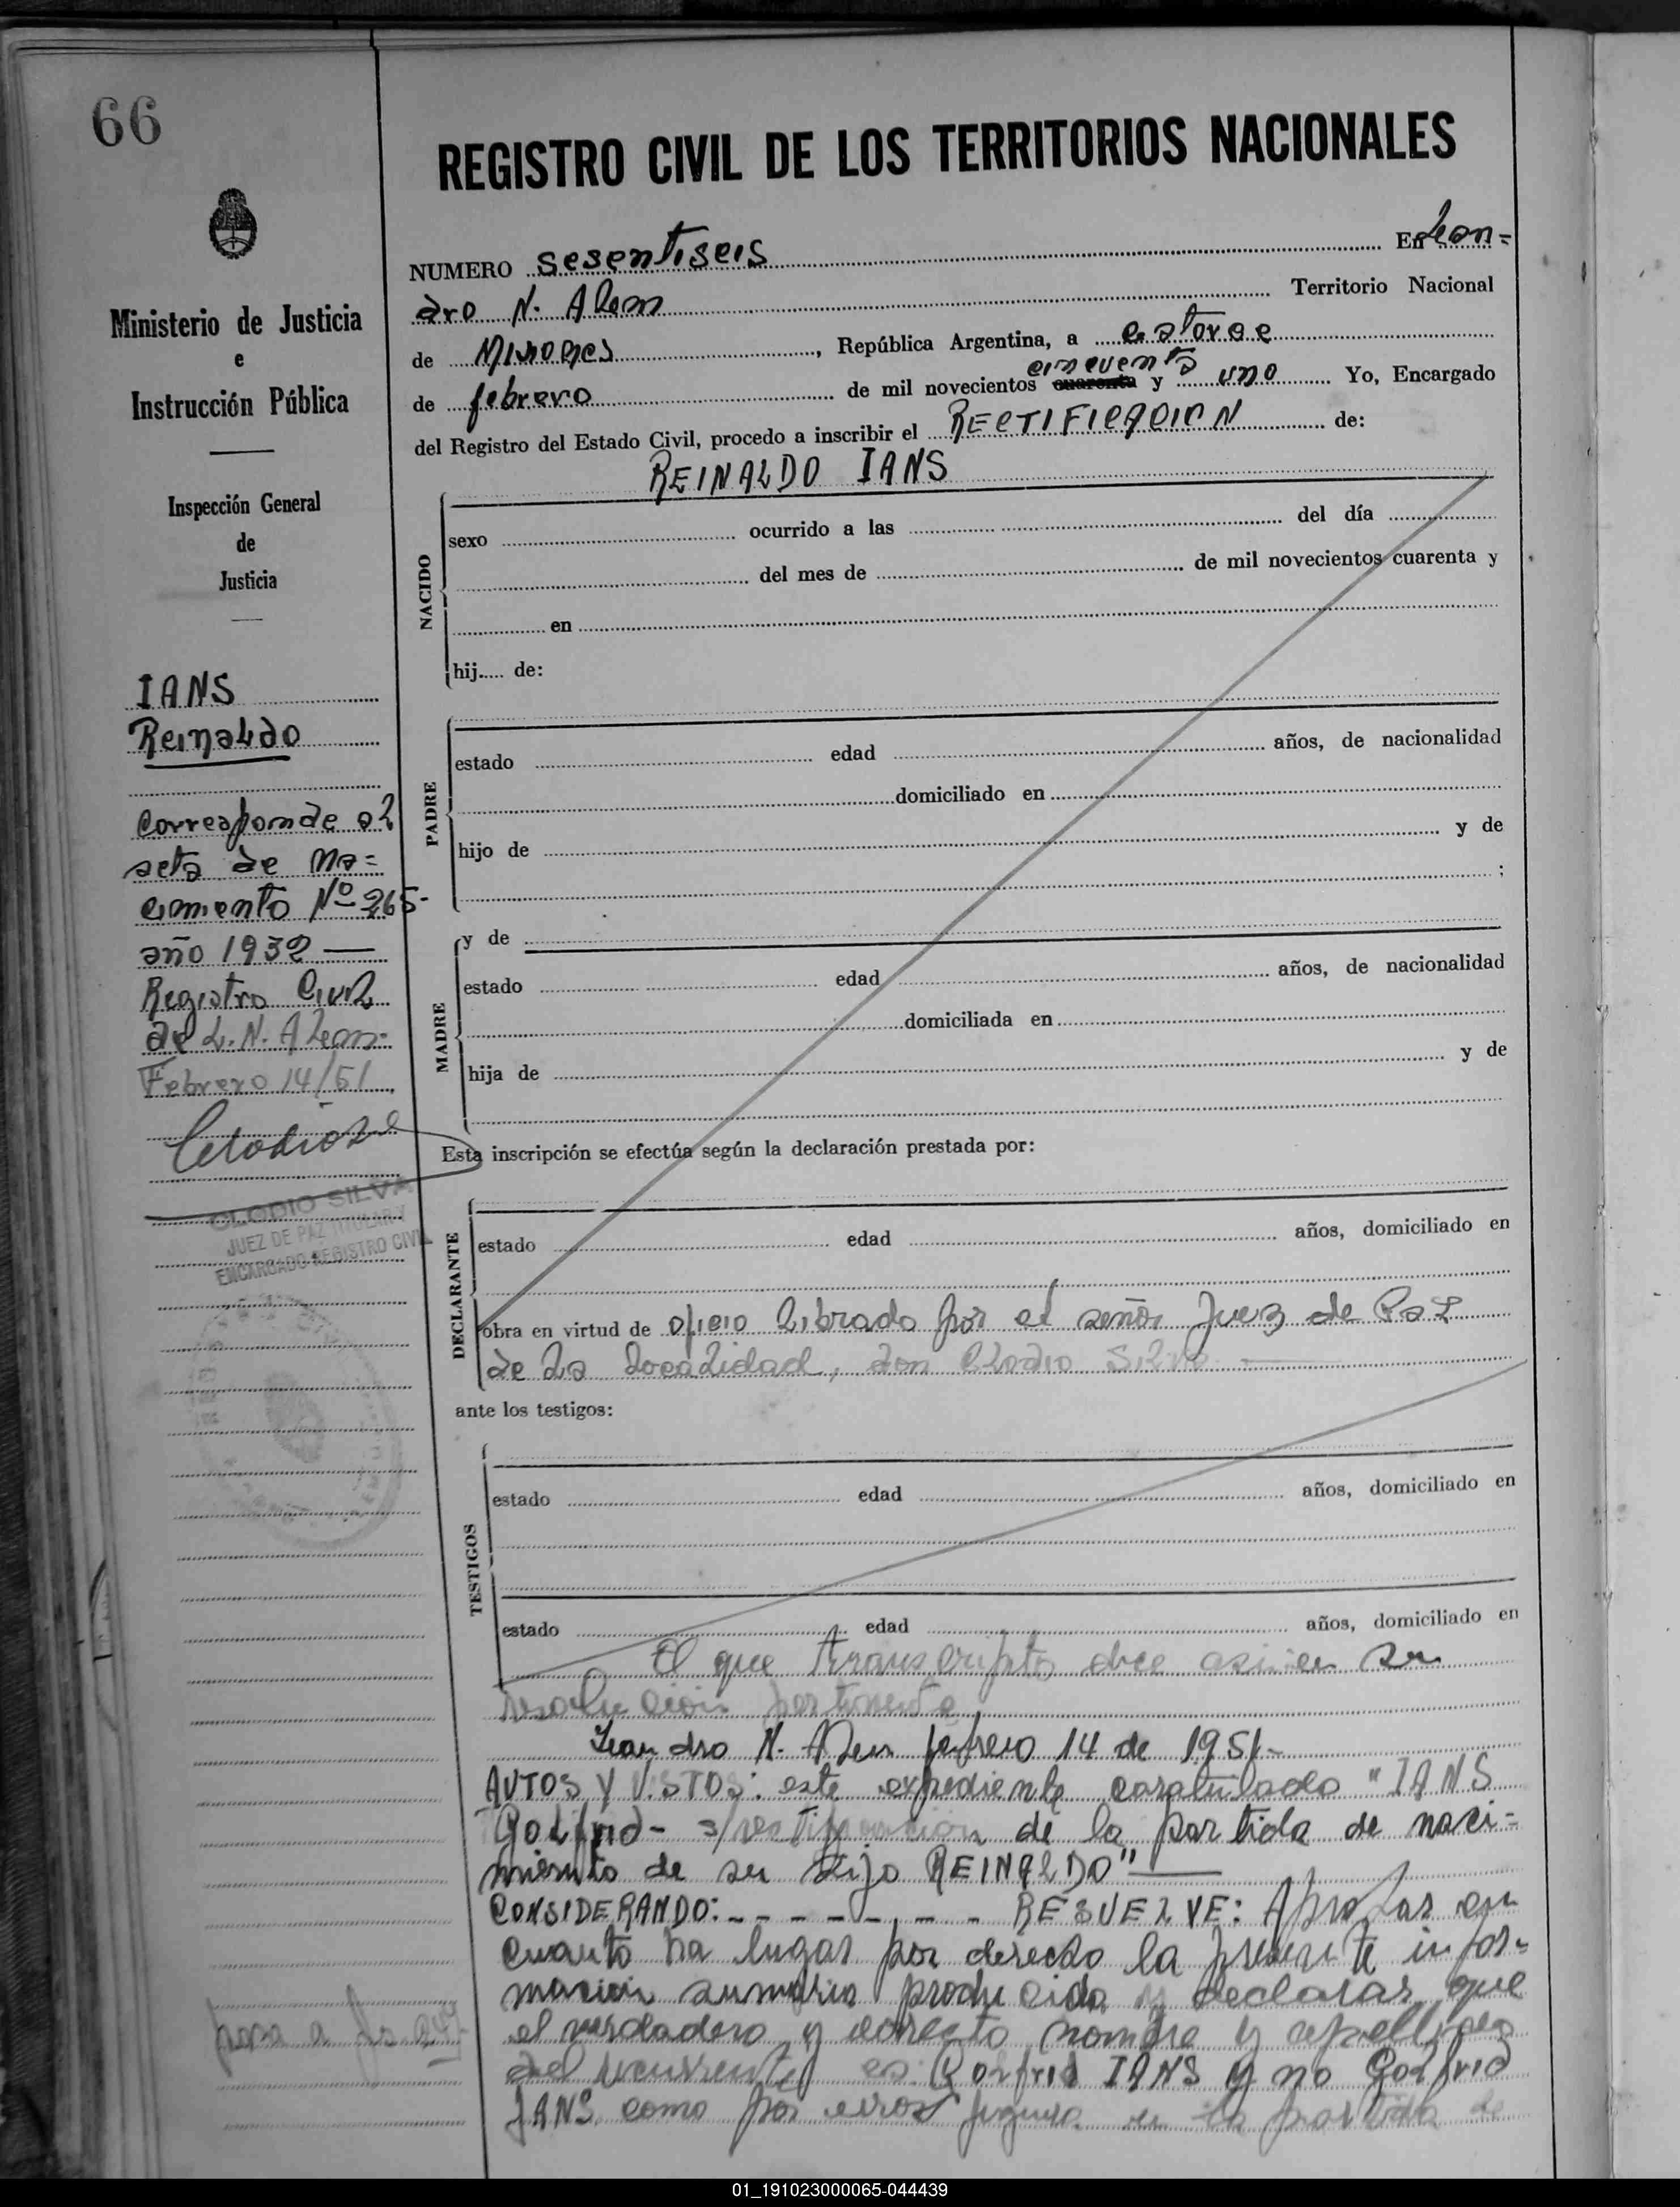 66
Ministerio de Justicia
e
Instrucción Pública
Inspección General
de
Justicia
IANS
Reinaldo
Corresponde al
acta de na=
cimiento Nº 265-
año 1932 —
Registro Civil
de L. N. Alem.
Febrero 14/51
CLODIO SILVA
JUEZ DE PAZ TITULAR Y
ENCARGADO REGISTRO CIVIL
pasa a
REGISTRO CIVIL DE LOS TERRITORIOS NACIONALES
NUMERO sesentiseis En Lean=
dro N. Alem Territorio Nacional
de Misiones, República Argentina, a catorce
cincuenta
de febrero de mil novecientos cuarenta y uno Yo, Encargado
del Registro del Estado Civil, procedo a inscribir el RECTIFICACION de:
REINALDO IANS
NACIDO
sexo ocurrido a las del día
del mes de de mil novecientos cuarenta y
en
hij..... de:
PADRE
estado edad años, de nacionalidad
domiciliado en
hijo de y de
;
MADRE
y de
estado edad años, de nacionalidad
domiciliada en
hija de y de
Esta inscripción se efectúa según la declaración prestada por:
DECLARANTE
estado edad años, domiciliado en
obra en virtud de oficio librado por el señor Juez de Paz
de la localidad, don Clodio Silva —
ante los testigos:
TESTIGOS
estado edad años, domiciliado en
estado edad años, domiciliado en
El que transcripto dice asi: en su
resolución pertinente
Leandro N. Alem febrero 14 de 1951-
AUTOS Y VISTOS: este expediente caratulado "IANS
Golfrid- s/rectificación de la partida de naci-
miento de su hijo REINALDO" —
CONSIDERANDO: - - - - - - - RESUELVE: Aprobar en
cuanto ha lugar por derecho la presente infor-
macion sumaria producida y declarar que
el verdadero y correcto nombre y apellido
del recurrente es: IANS y no Golfrid
JANS como por error figura en la partida de
01_191023000065-044439